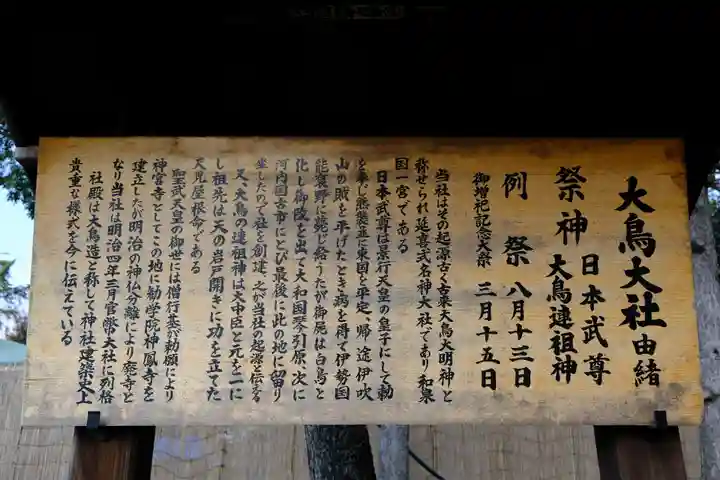 大鳥大社由緒
祭神 日本武尊
大鳥連祖神
例祭 八月十三日
御増祀記念大祭 三月十五日
当社はその起源古く古来大鳥大明神と
称せられ延喜式名神大社であり和泉
国一宮である
日本武尊は景行天皇の皇子にして勅
を奉じ熊襲並に東国を平定、帰途伊吹
山の賊を平げたとき病を得て伊勢国
能褒野に死じ給うたが御屍は白鳥と
化し御陵を出で大和国琴引原、次に
河内国古市にとび最後に此の地に留り
坐したので社を創建 之が当社の起源と伝える
又、大鳥の連祖神は大中臣と元を一に
し祖先は天の岩戸開きに功を立てた
天児屋根命である
聖武天皇の御世には僧行基が勅願により
神宮寺としてこの地に勧学院神鳳寺を
建立したが明治の神仏分離により廃寺と
なり当社は明治四年三月官幣大社に列格
社殿は大鳥造と称して神社建築史上
貴重な様式を今に伝えている